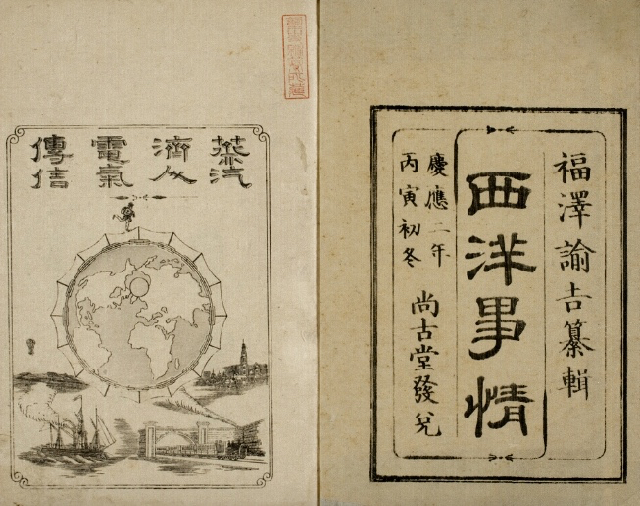 福澤諭吉纂輯
西洋事情
慶應二年
丙寅初冬
尚古堂發兌
蒸汽
濟人
電氣
傳信